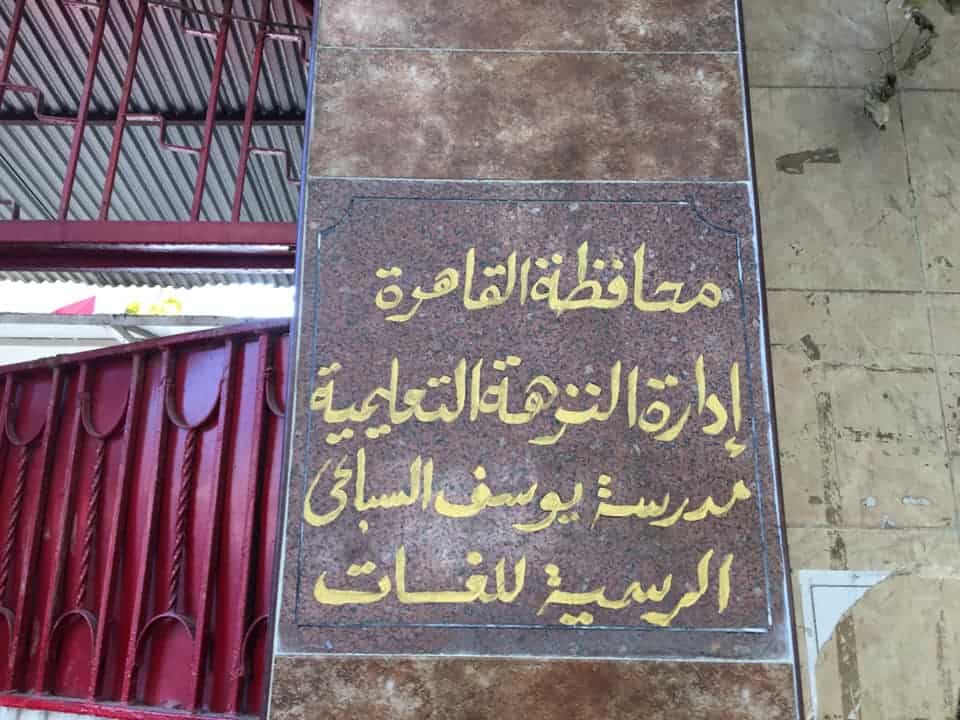 محافظة القاهرة
إدارة النزهة التعليمية
مدرسة يوسف السباعى
الرسمية للغات